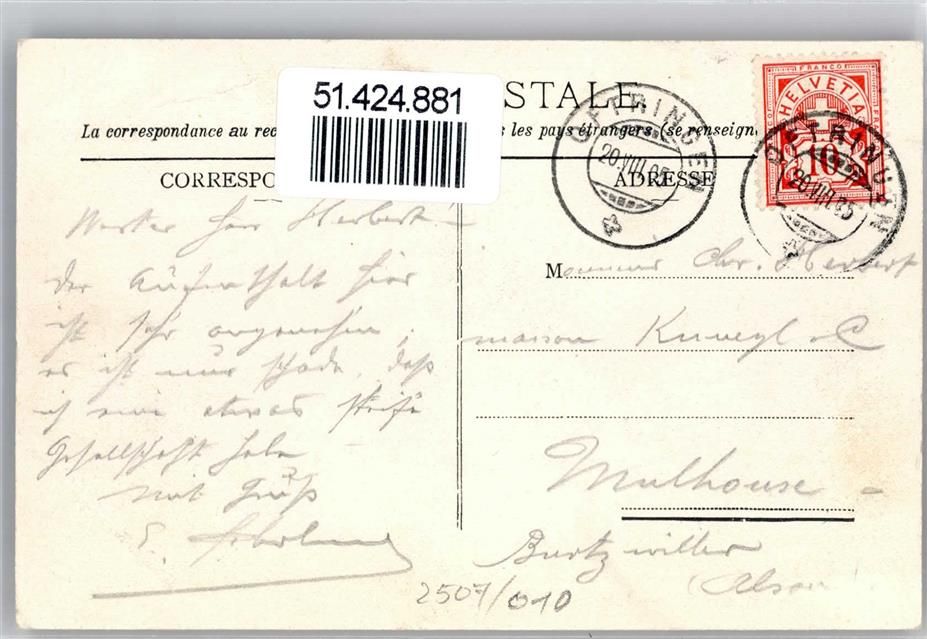 51.424.881
STALE
La correspondance au rec
s les pays étrangers (se renseign
CORRESPO
ADRESSE
FRANCO
HELVETIA
10
OFTRINGEN
20.VIII.05
OFTRINGEN
20.VIII.05
Werter Herr Herbert!
Der Aufenthalt hier
ist sehr angenehm,
es ist nur schade, daß
ich eine etwas steife
Gesellschaft habe
mit Gruß
E.
Monsieur Chr. Herbert
maison
Mulhouse
Burtzwiller
(Alsace)
2507/010